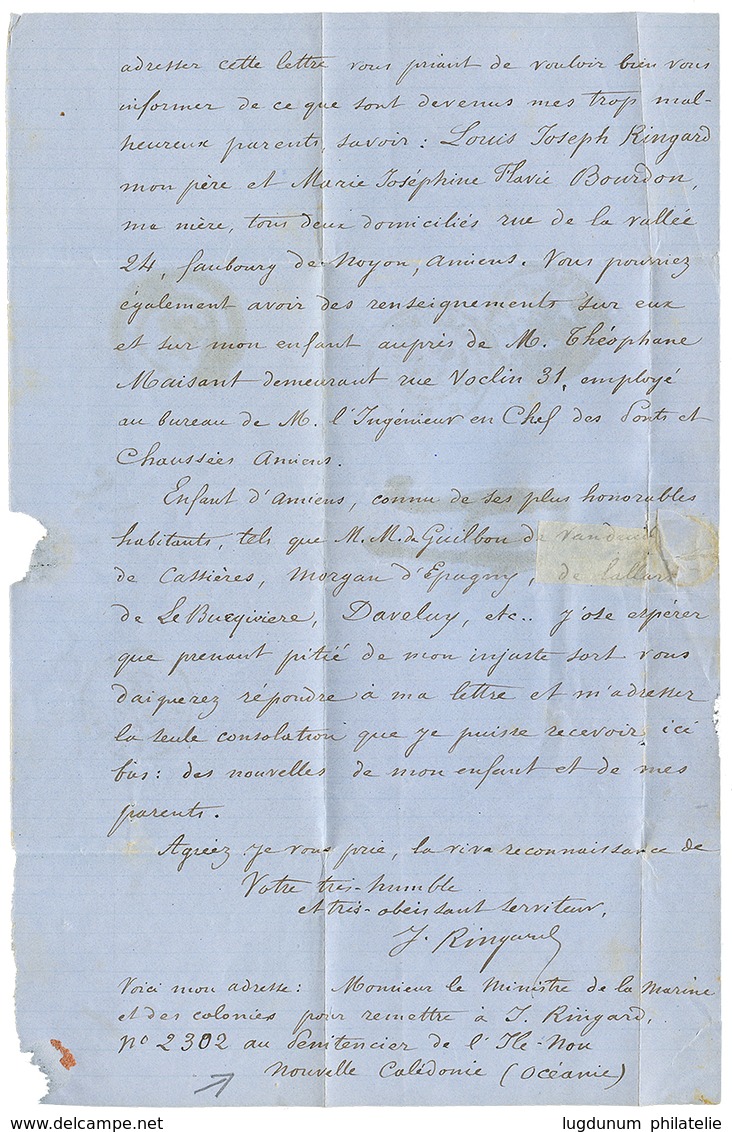 adresser cette lettre vous priant de vouloir bien vous
informer de ce que sont devenus mes trop mal-
heureux parents, savoir : Louis Joseph Ringard
mon père et Marie Joséphine Flavie Bourdon,
ma mère, tous deux domiciliés rue de la vallée
24, faubourg de Noyon, Amiens. Vous pourriez
également avoir des renseignements sur eux
et sur mon enfant auprès de M. Théophane
Maisant demeurant rue Voclin 31, employé
au bureau de M. l'Ingénieur en Chef des Ponts et
Chaussées Amiens.
Enfant d'Amiens, connu de ses plus honorables
habitants, tels que M.M. de Guilbon de Vandeuil
de Cassières, Morgan d'Epagny, de
de Davelay, etc.. j'ose espérer
que prenant pitié de mon injuste sort vous
daignerez répondre à ma lettre et m'adresser
la seule consolation que je puisse recevoir ici
bas : des nouvelles de mon enfant et de mes
parents.
Agréez je vous prie, la vive reconnaissance de
Votre très-humble
et très-obéissant serviteur,
J. Ringard
Voici mon adresse : Monsieur le Ministre de la Marine
et des colonies pour remettre à J. Ringard,
No 2302 au Pénitencier de l'Ile-Nou
Nouvelle Calédonie (Océanie)
www.delcampe.net
lugdunum philatelie